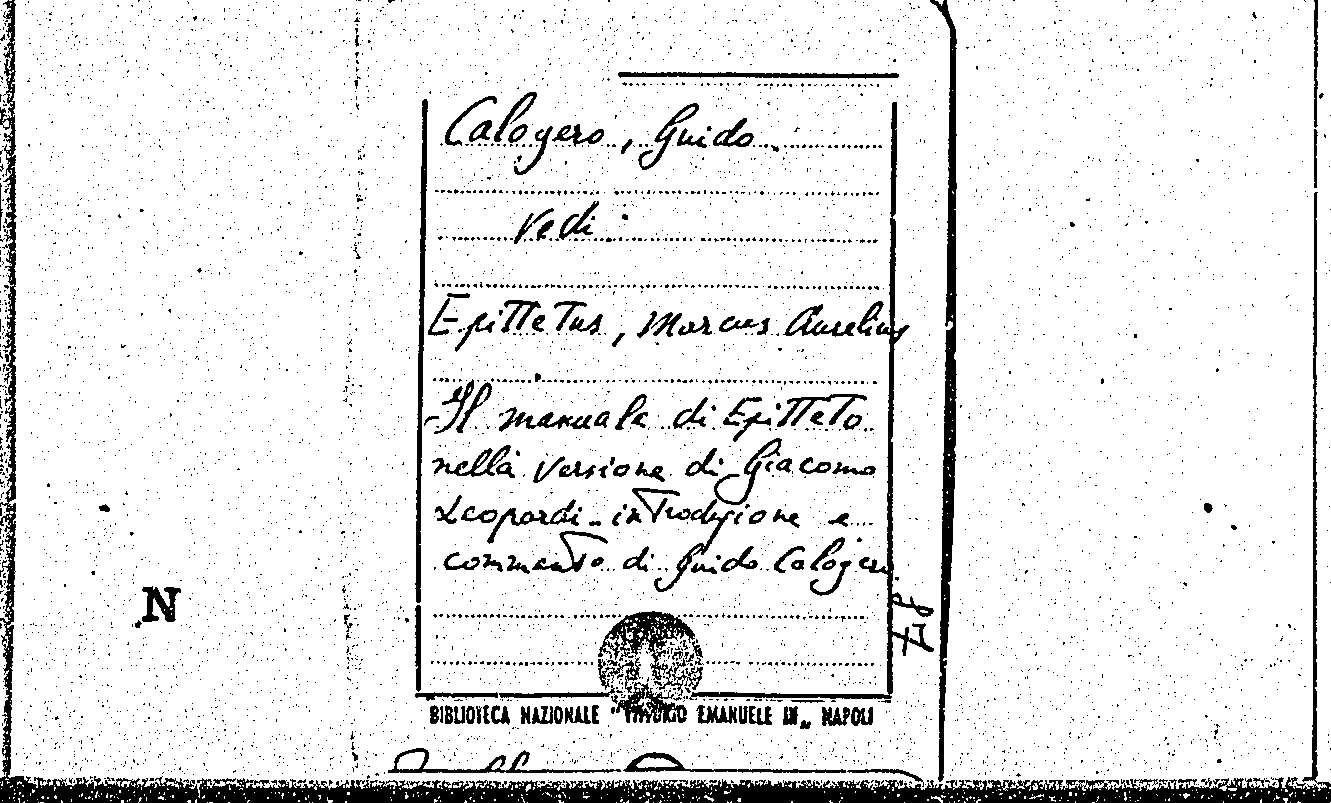 Calogero, Guido.
vedi:
Epittetus, Marcus Aurelius
Il manuale di Epitteto
nella versione di Giacomo
Leopardi - introduzione e
commento di Guido Calogero.
N
BIBLIOTECA NAZIONALE "VITTORIO EMANUELE III" NAPOLI